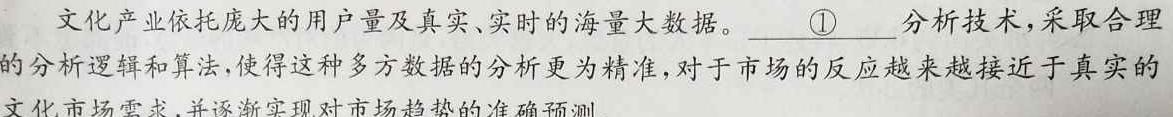 文化产业依托庞大的用户量及真实、实时的海量大数据。 ① 分析技术,采取合理
的分析逻辑和算法,使得这种多方数据的分析更为精准,对于市场的反应越来越接近于真实的
文化市场需求,并逐渐实现对市场趋势的准确预测